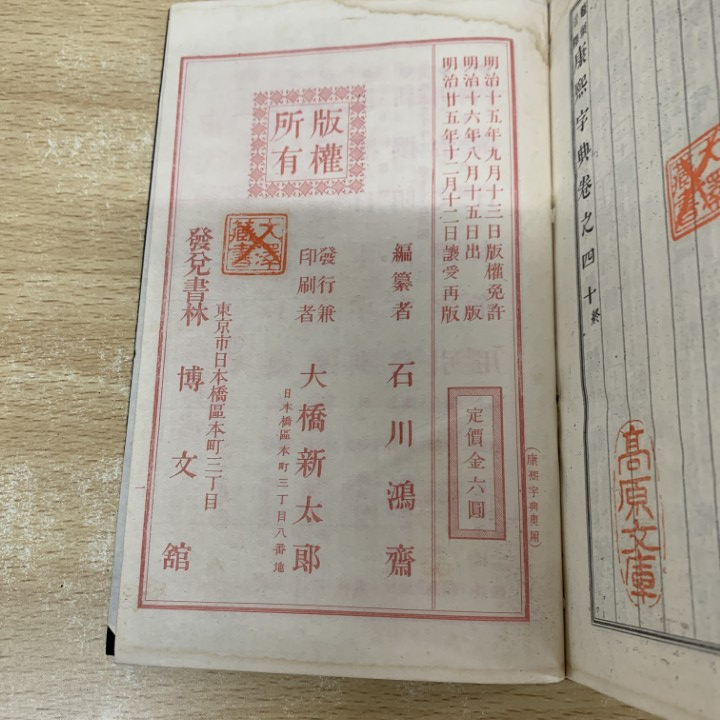 康熙字典卷之四十終
高原文庫
藏書
明治十五年九月十三日版權免許
明治十六年八月十五日出版
明治廿五年十二月十二日讓受再版
定價金六圓
版權
所有
編纂者 石川鴻齋
發行兼
印刷者
大橋新太郎
日本橋區本町三丁目八番地
藏書
東京市日本橋區本町三丁目
發兌書林 博文館